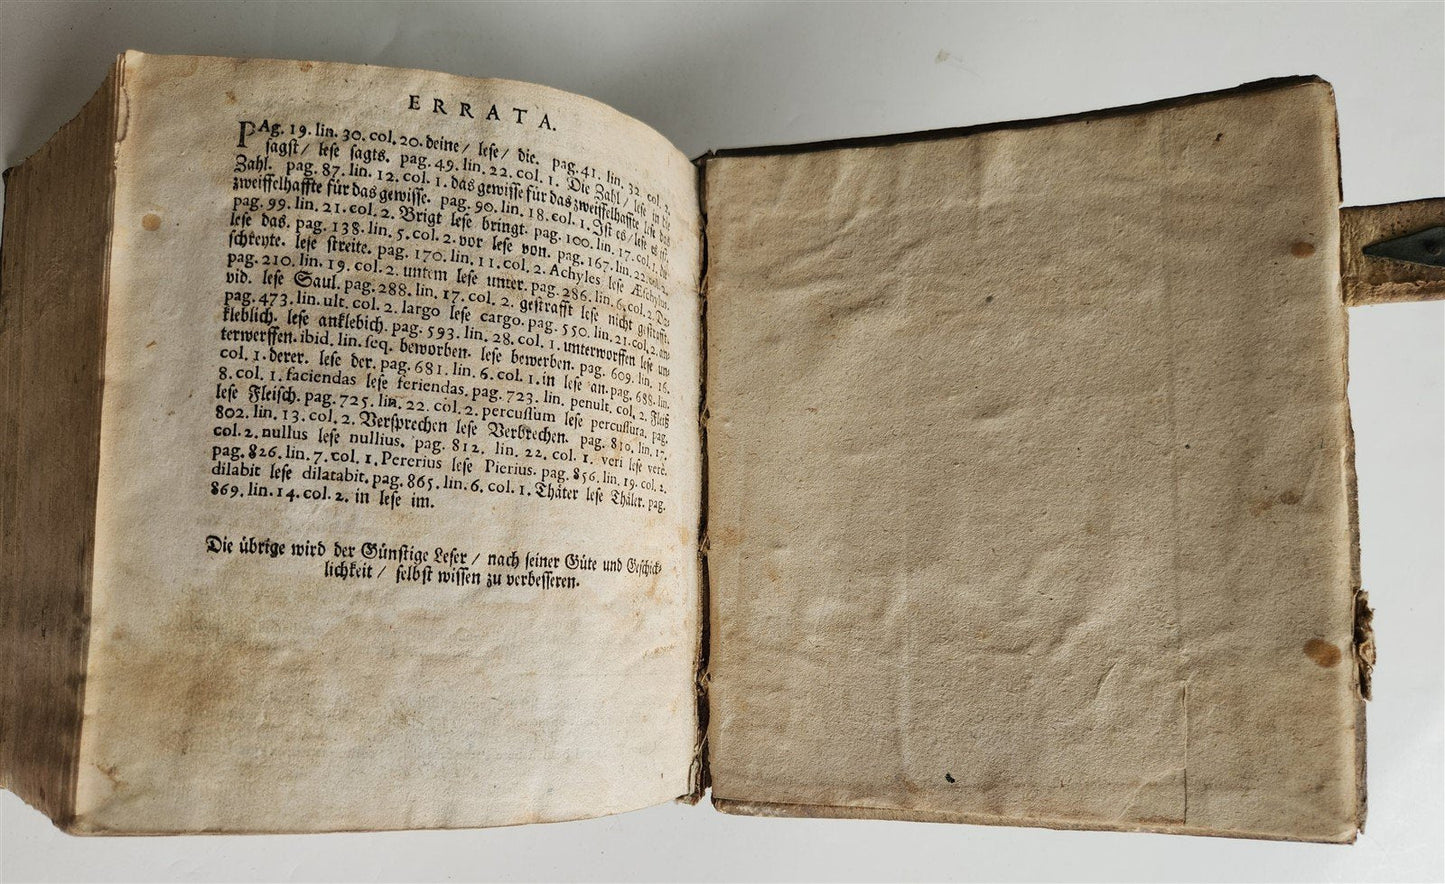 ERRATA.
PAg. 19. lin. 30. col. 20. deine / lese / die. pag. 41. lin. 32. col. 2.
sagst / lese sagts. pag. 49. lin. 22. col. 1. Die Zahl / lese in die
Zahl. pag. 87. lin. 12. col. 1. das gewisse für das zweiffelhaffte lese das
zweiffelhaffte für das gewisse. pag. 90. lin. 18. col. 1. Ist es / lese es ist.
pag. 99. lin. 21. col. 2. Brigt lese bringt. pag. 100. lin. 17. col. 1.
lese das. pag. 138. lin. 5. col. 2. vor lese von. pag. 167. lin. 22. col. 2.
schreyte. lese streite. pag. 170. lin. 11. col. 2. Achyles lese Æschylus.
pag. 210. lin. 19. col. 2. untem lese unter. pag. 286. lin. 6. col. 2. Da-
vid. lese Saul. pag. 288. lin. 17. col. 2. gestrafft lese nicht gestrafft.
pag. 473. lin. ult. col. 2. largo lese cargo. pag. 550. lin. 21. col. 2. an-
kleblich. lese anklebich. pag. 593. lin. 28. col. 1. unterworffen lese un-
terwerffen. ibid. lin. seq. beworben. lese bewerben. pag. 609. lin. 16.
col. 1. derer. lese der. pag. 681. lin. 6. col. 1. in lese an. pag. 688. lin.
8. col. 1. faciendas lese feriendas. pag. 723. lin. penult. col. 2. Fleiß
lese Fleisch. pag. 725. lin. 22. col. 2. percussum lese percussura. pag.
802. lin. 13. col. 2. Versprechen lese Verbrechen. pag. 810. lin. 17.
col. 2. nullus lese nullius. pag. 812. lin. 22. col. 1. veri lese verè.
pag. 826. lin. 7. col. 1. Pererius lese Pierius. pag. 856. lin. 19. col. 2.
dilabit lese dilatabit. pag. 865. lin. 6. col. 1. Thäter lese Thäler. pag.
869. lin. 14. col. 2. in lese im.
Die übrige wird der Günstige Leser / nach seiner Güte und Geschick-
lichkeit / selbst wissen zu verbesseren.